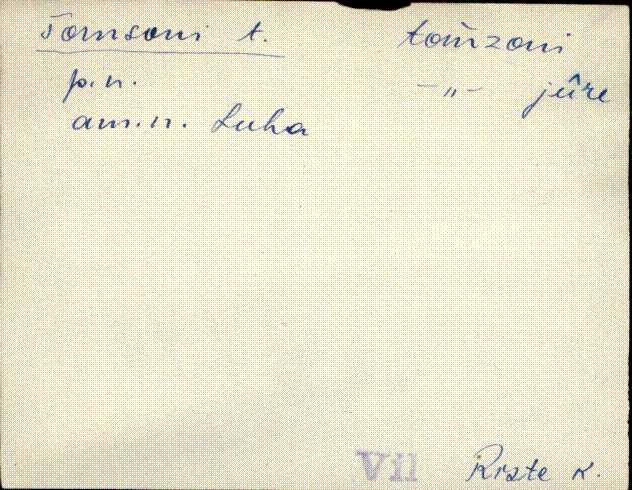 Tomsoni t. tom̀zoni
p.n. -"- jûre
am.n. Luha
Vil Riste k.